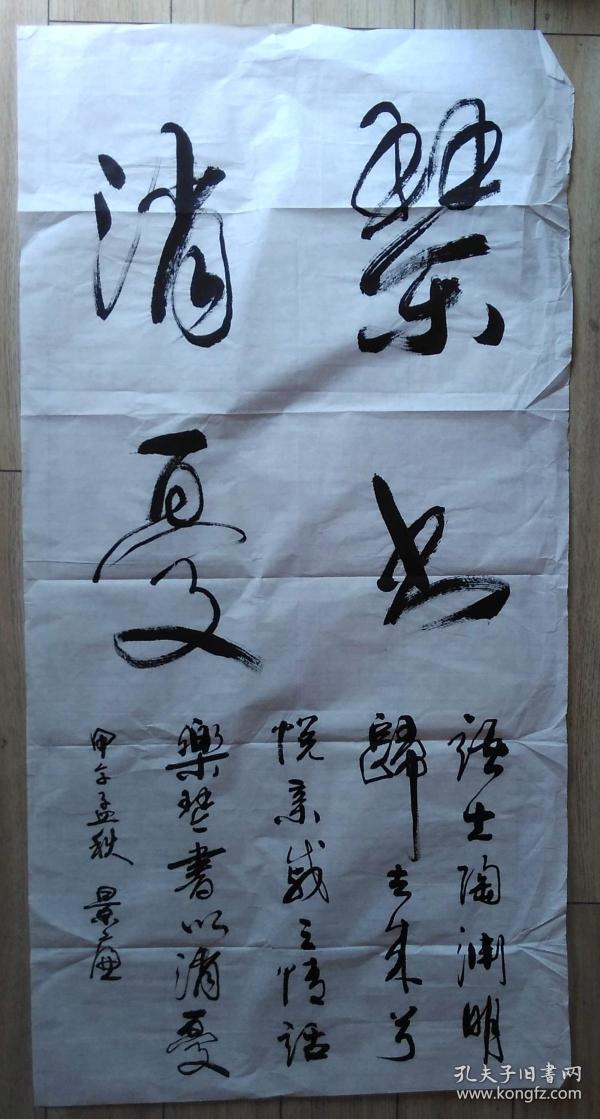 琹书
消憂
語出陶渊明
歸去来兮
悦亲戚之情話
樂琴書以消憂
甲午孟秋 景廉
孔夫子旧書网
www.kongfz.com